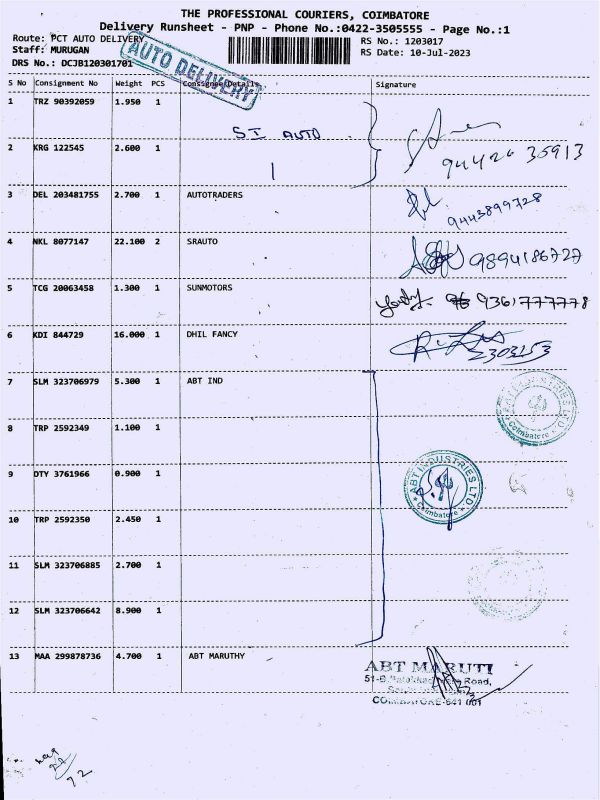 THE PROFESSIONAL COURIERS, COIMBATORE
Delivery Runsheet - PNP - Phone No.:0422-3505555 - Page No.:1
Route: PCT AUTO DELIVERY
RS No.: 1203017
Staff: MURUGAN
RS Date: 10-Jul-2023
DRS No.: DCJB120301701
AUTO DELIVERY
S No Consignment No Weight PCS Consignee Details Signature
1 TRZ 90392059 1.950 1
SI AUTO
2 KRG 122545 2.600 1
94426 35913
3 DEL 203481755 2.700 1 AUTOTRADERS
9443899728
4 NKL 8077147 22.100 2 SRAUTO
9894186727
5 TCG 20063458 1.300 1 SUNMOTORS
9361777778
6 KDI 844729 16.000 1 DHIL FANCY
2303153
7 SLM 323706979 5.300 1 ABT IND
ABT INDUSTRIES LTD. Coimbatore
8 TRP 2592349 1.100 1
9 DTY 3761966 0.900 1
ABT INDUSTRIES LTD. Coimbatore
10 TRP 2592350 2.450 1
11 SLM 323706885 2.700 1
12 SLM 323706642 8.900 1
13 MAA 299878736 4.700 1 ABT MARUTHY
ABT MARUTI
Road,
COIMBATORE-641 001